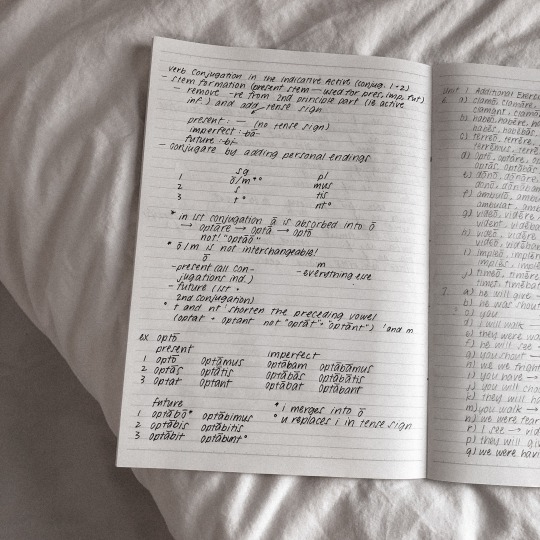 verb conjugation in the indicative active (conjug. 1+2)
- stem formation (present stem — used for pres, imp, fut)
- remove -re from 2nd principle part (ie active
inf.) and add tense sign
present: — (no tense sign)
imperfect: -ba-
future: -bi-
- conjugate by adding personal endings
sg pl
1 ō/m*° mus
2 s tis
3 t° nt°
* in 1st conjugation ā is absorbed into ō
→ optāre → optā → optō
not! "optāō"
* ō/m is not interchangeable!
ō m
- present (all con- - everything else
jugations ind.)
- future (1st +
2nd conjugation)
° t and nt shorten the preceding vowel
(optat + optant not "optāt" + "optānt") and m
ex optō
present imperfect
1 optō optāmus optābam optābāmus
2 optās optātis optābās optābātis
3 optat optant optābat optābant
future * i merges into ō
1 optābō* optābimus ° u replaces i in tense sign
2 optābis optābitis
3 optābit optābunt°
Unit 1 Additional
6. a) clamō, clamāre,
clamant, clamā
b) habō, habēre, ha
habēs, habēbās
c) terreō, terrēre,
terrēmus, terrē
d) optō, optāre, op
optās, optābās
e) dōnō, dōnāre,
dōnō, dōnāba
f) ambulō, ambul
ambulat, ambul
g) videō, vidēre
vident, vidēba
h) videō, vidēre,
vidēs, vidēba
i) impleō, implē
implēs, implē
j) timeō, timēre,
timet, timēbat
7. a) he will give
b) he was shout
c) you
d) I will walk
e) they were wa
f) he will see
g) you shout
h) we we fright
i) you have →
j) you will
k) they will h
m) you walk →
n) we were fear
o) I see → vid
p) they will giv
q) we were havi